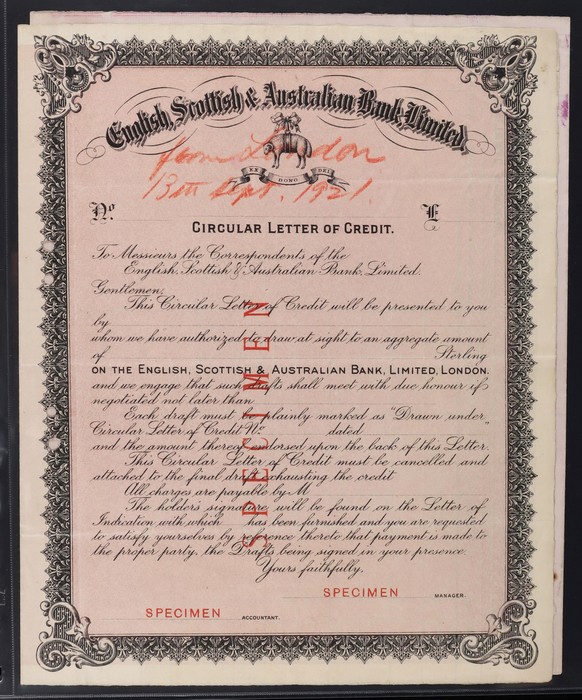 English, Scottish & Australian Bank, Limited.
from London
13th Sept. 1921.
EX DONO DEI
No. £
CIRCULAR LETTER OF CREDIT.
To Messieurs the Correspondents of the
English, Scottish & Australian Bank, Limited.
Gentlemen:
This Circular Letter of Credit will be presented to you
by
whom we have authorized to draw at sight to an aggregate amount
of Sterling
ON THE ENGLISH, SCOTTISH & AUSTRALIAN BANK, LIMITED, LONDON.
and we engage that such drafts shall meet with due honour if
negotiated not later than
Each draft must be plainly marked as "Drawn under
Circular Letter of Credit No. dated "
and the amount thereof endorsed upon the back of this Letter.
This Circular Letter of Credit must be cancelled and
attached to the final draft exhausting the credit.
All charges are payable by M
The holder's signature will be found on the Letter of
Indication with which has been furnished and you are requested
to satisfy yourselves by reference thereto that payment is made to
the proper party, the Drafts being signed in your presence.
Yours faithfully,
SPECIMEN
SPECIMEN MANAGER.
SPECIMEN ACCOUNTANT.